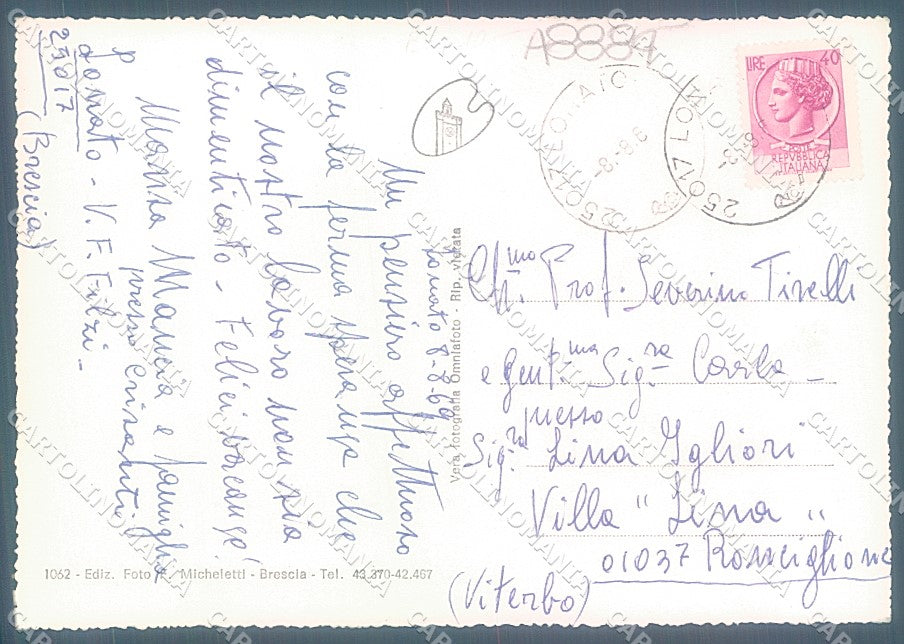 A888A
LIRE 40
POSTE
REPVBBLICA
ITALIANA
25017 LONATO
8-8-6
25017 LON
Lonato 8-8-69
Un pensiero affettuoso
con la ferma speranza che
il nostro lavoro non sia
dimenticato - Felici vacanze!
Marisa Mancia e famiglia
presso Crisanti
Lonato - V. F. Filzi -
25017
(Brescia)
Vera fotografia Omniafoto - Rip. vietata
Ch.mo Prof. Severino Tirelli
e Gent.ma Sig.ra Carla -
presso
Sig.ra "Lina Igliori"
Villa "Lina"
01037 Ronciglione
(Viterbo)
1062 - Ediz. Foto F. Micheletti - Brescia - Tel. 43.370-42.467
CARTOLINOMANIA